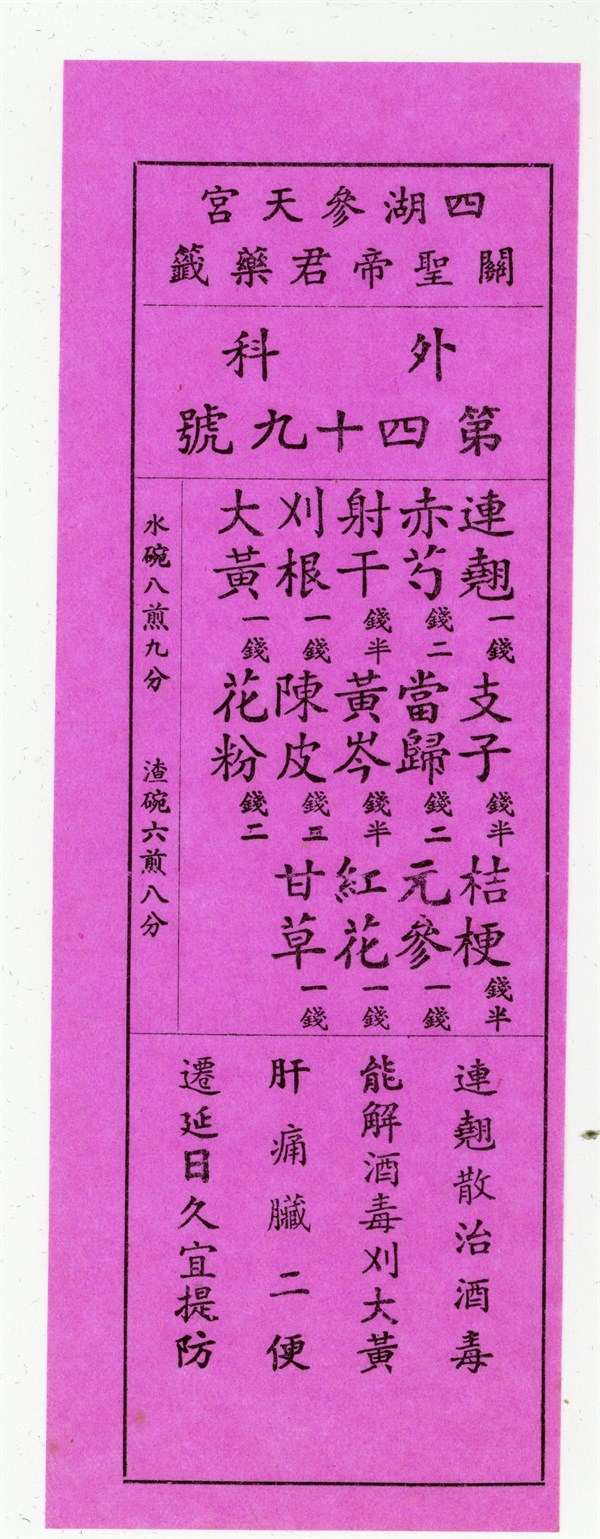 四湖參天宮
關聖帝君藥籤
外科
第四十九號
連翹一錢 支子錢半 桔梗錢半
赤芍錢二 當歸錢二 元參一錢
射干錢半 黃岑錢半 紅花一錢
刈根一錢 陳皮錢三 甘草一錢
大黃一錢 花粉錢二
水碗八煎九分 渣碗六煎八分
連翹散治酒毒
能解酒毒刈大黃
肝痛臟二便
遷延日久宜提防